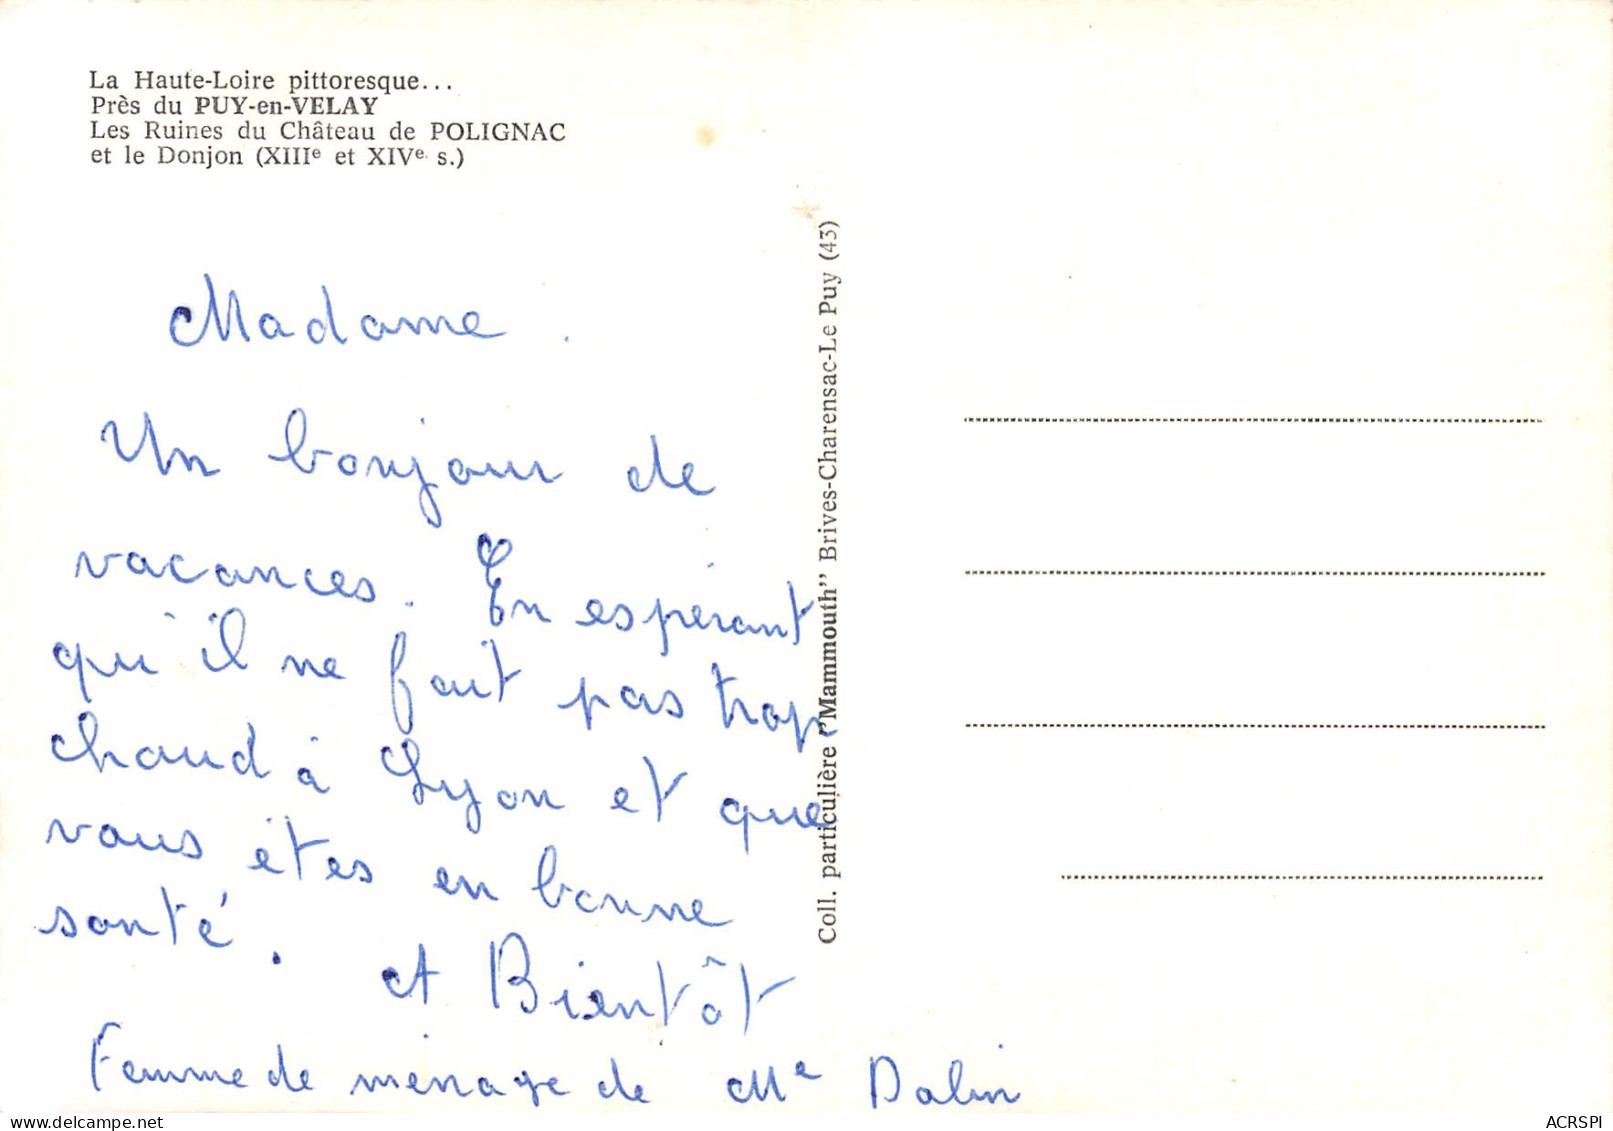 La Haute-Loire pittoresque...
Près du PUY-en-VELAY
Les Ruines du Château de POLIGNAC
et le Donjon (XIIIe et XIVe s.)
Madame.
Un bonjour de
vacances. En espérant
qu'il ne fait pas trop
chaud à Lyon et que
vous êtes en bonne
santé.
A Bientôt
Femme de ménage de Me Dalin
Coll. particulière "Mammouth" Brives-Charensac-Le Puy (43)
ACRSPI